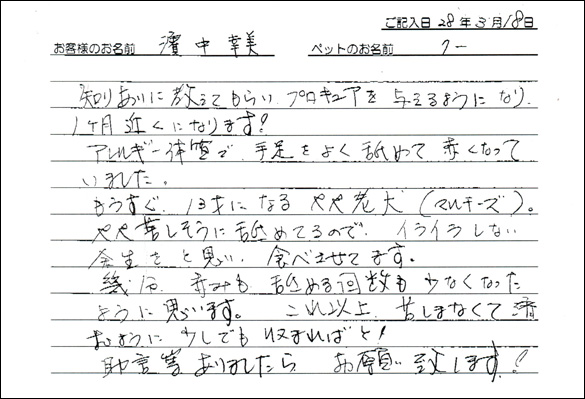 ご記入日 28年3月18日
お客様のお名前 濱中幸美 ペットのお名前 クー
知りあいに教えてもらい、プロキュアを与えるようになり、
1ヶ月近くになります!
アレルギー体質で、手足をよく舐めて赤くなって
いました。
もうすぐ、13才になるやや老犬(マルチーズ)。
やや苦しそうに舐めてるので、イライラしない
余生をと思い、食べさせてます。
幾分、赤みも舐める回数も少なくなった
ように思います。これ以上、苦しまなくて済
むように少しでも収まればと!
助言等ありましたら お願い致します!